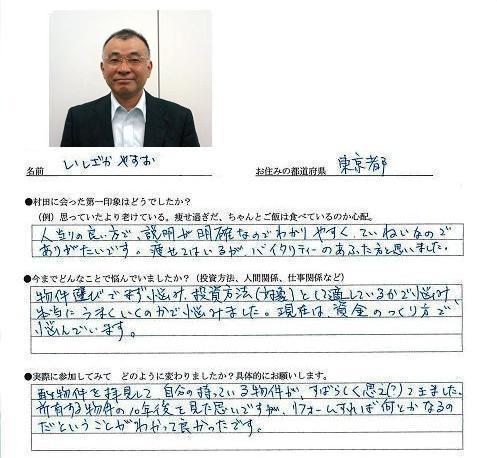 名前 いしざか やすお
お住みの都道府県 東京都
●村田に会った第一印象はどうでしたか?
(例)思っていたより老けている。痩せ過ぎだ、ちゃんとご飯は食べているのか心配。
人当りの良い方で、説明が明確なのでわかりやすく、ていねいなので
ありがたいです。痩せてはいるが、バイタリティーのあふた方と思いました。
●今までどんなことで悩んでいましたか?(投資方法、人間関係、仕事関係など)
物件選びでまず悩み、投資方法()として適しているかで悩み、
本当にうまくいくのかで悩みました。現在は、資金のつくり方で
悩んでいます。
●実際に参加してみて どのように変わりましたか?具体的にお願いします。
物件を拝見して 自分の持っている物件が、すばらしく思え(?)てきました。
所有する物件の10年後を見た思いですが、リフォームすれば何とかなるの
だということがわかって良かったです。